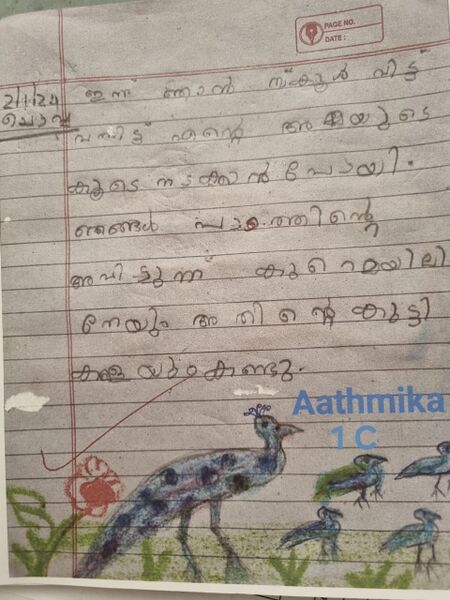 PAGE NO.
DATE :
2/1/24
ചൊവ്വ
ഇന്ന് ഞാൻ സ്കൂൾ വിട്ട്
വന്നിട്ട് എൻ്റെ അമ്മയുടെ
കൂടെ നടക്കാൻ പോയി.
ഞങ്ങൾ പാടത്തിൻ്റെ
അവിടുന്ന് കുറെ മയിലി
നേയും അതിൻ്റെ കുട്ടി
കളെയും കണ്ടു.
Aathmika
1 C